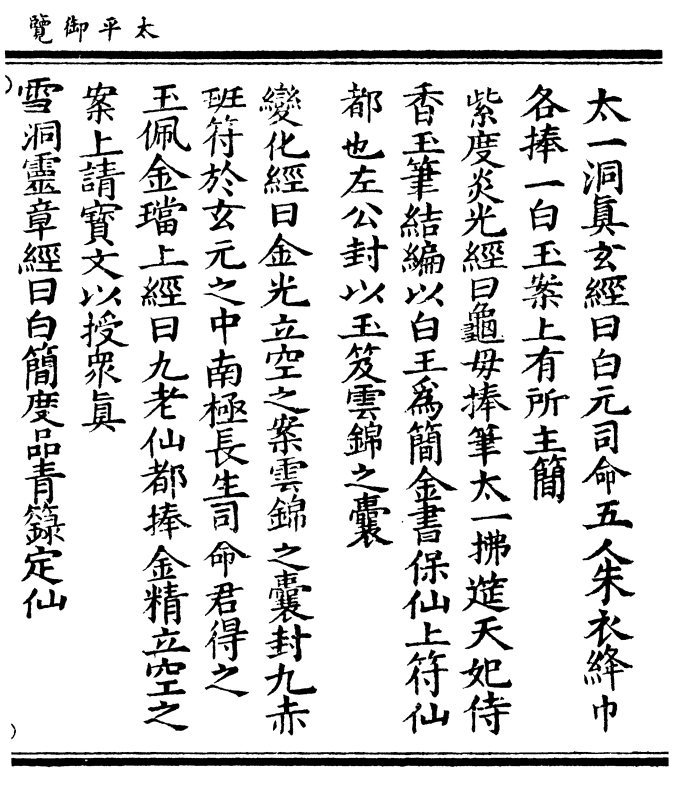 太平御覽
太一洞眞玄經曰白元司命五人朱衣絳巾
各捧一白玉案上有所主簡
紫度炎光經曰龜母捧筆太一拂筵天妃侍
香玉筆結編以白玉爲簡金書保仙上符仙
都也左公封以玉笈雲錦之囊
變化經曰金光立空之案雲錦之囊封九赤
班符於玄元之中南極長生司命君得之
玉佩金璫上經曰九老仙都捧金精立空之
案上請寶文以授衆眞
雪洞靈章經曰白簡度品青籙定仙